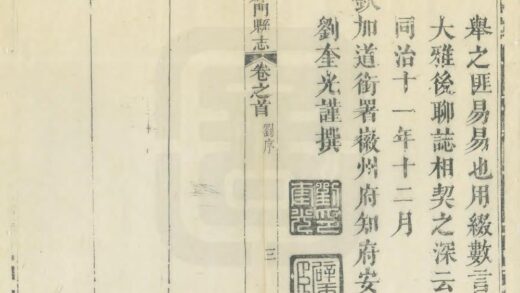 舉之匪易易也用綴數言
大雅後聊誌相契之深云
同治十一年十二月
欽加道銜署徽州府知府安
劉奎光謹撰
門縣志 卷之首 劉序 三